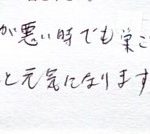 が悪い時でも巣こ
と元気になります